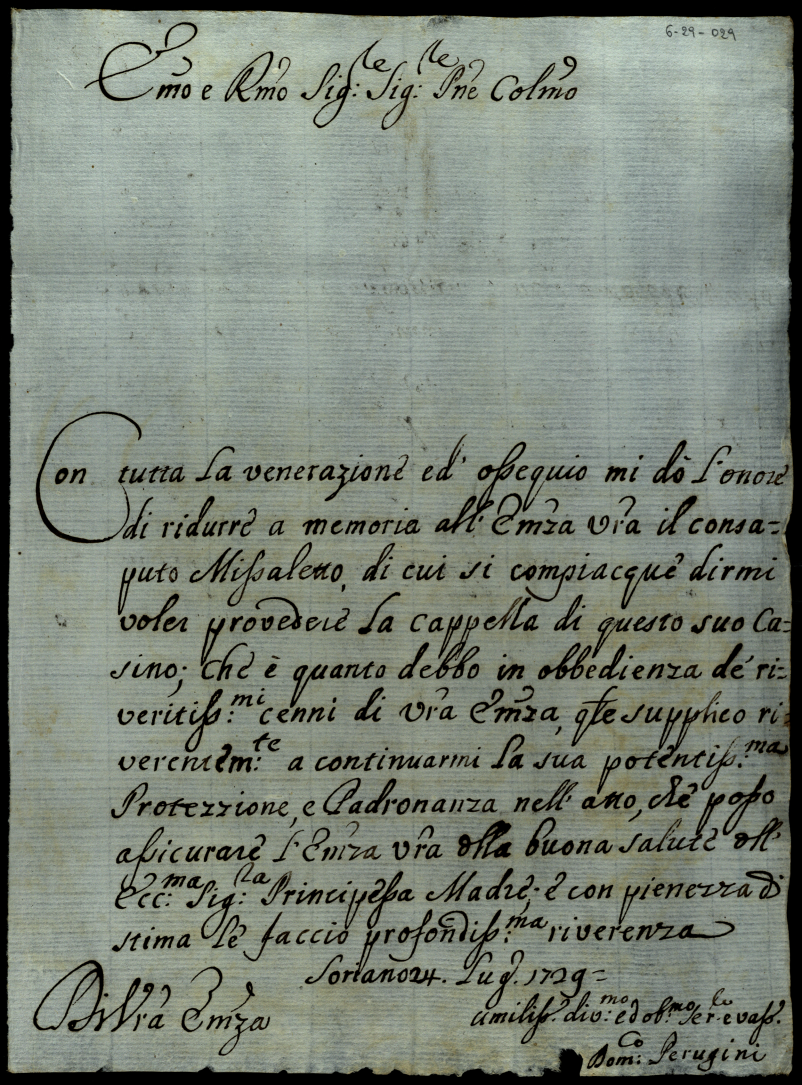 6-29-029
Emo e Rmo Sig:re Sig:re Pne Colmo
Con tutta la venerazione ed' ossequio mi dò l'onore
di ridurre a memoria all' Emza Vra il consa=
puto Missaletto, di cui si compiacque dirmi
voler provedere la cappella di questo suo Ca=
sino; Che è quanto debbo in obbedienza de' ri=
veritiss:mi cenni di Vra Emza, qle supplico ri=
verentem:te a continuarmi la sua potentiss:ma
Protezzione, e Padronanza nell' atto, che posso
assicurare l'Emza Vra della buona salute dell'
Ecc:ma Sig:ra Principessa Madre; e con pienezza di
stima le faccio profondiss:ma riverenza
Soriano 24. Lug. 1729=
Di Vra Emza
Umiliss. div:mo ed ob:mo Ser:re e vass.
Dom:co Perugini